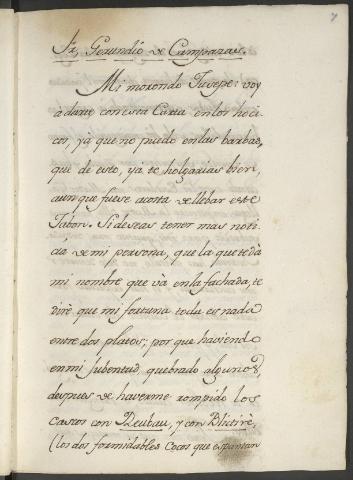 7
Fr. Gerundio de Campazas.
Mi morondo Jusepe: voy
à darte con esta Carta en los hoci
cos, yà que no puedo en las barbas,
que de esto, yà te holgarias bien,
aunque fuese acosta de llebar este
Jabon. Si deseas tener mas noti
cia de mi persona, que la que te dà
mi nombre que và en la fachada, te
dirè, que mi fortuna toda es nada
entre dos platos; por que haviendo
en mi Jubentud quebrado algunos,
despues de haverme rompido los
cascos con Beubau, y con Blictiri,
(los dos formidables Cocos que espantan